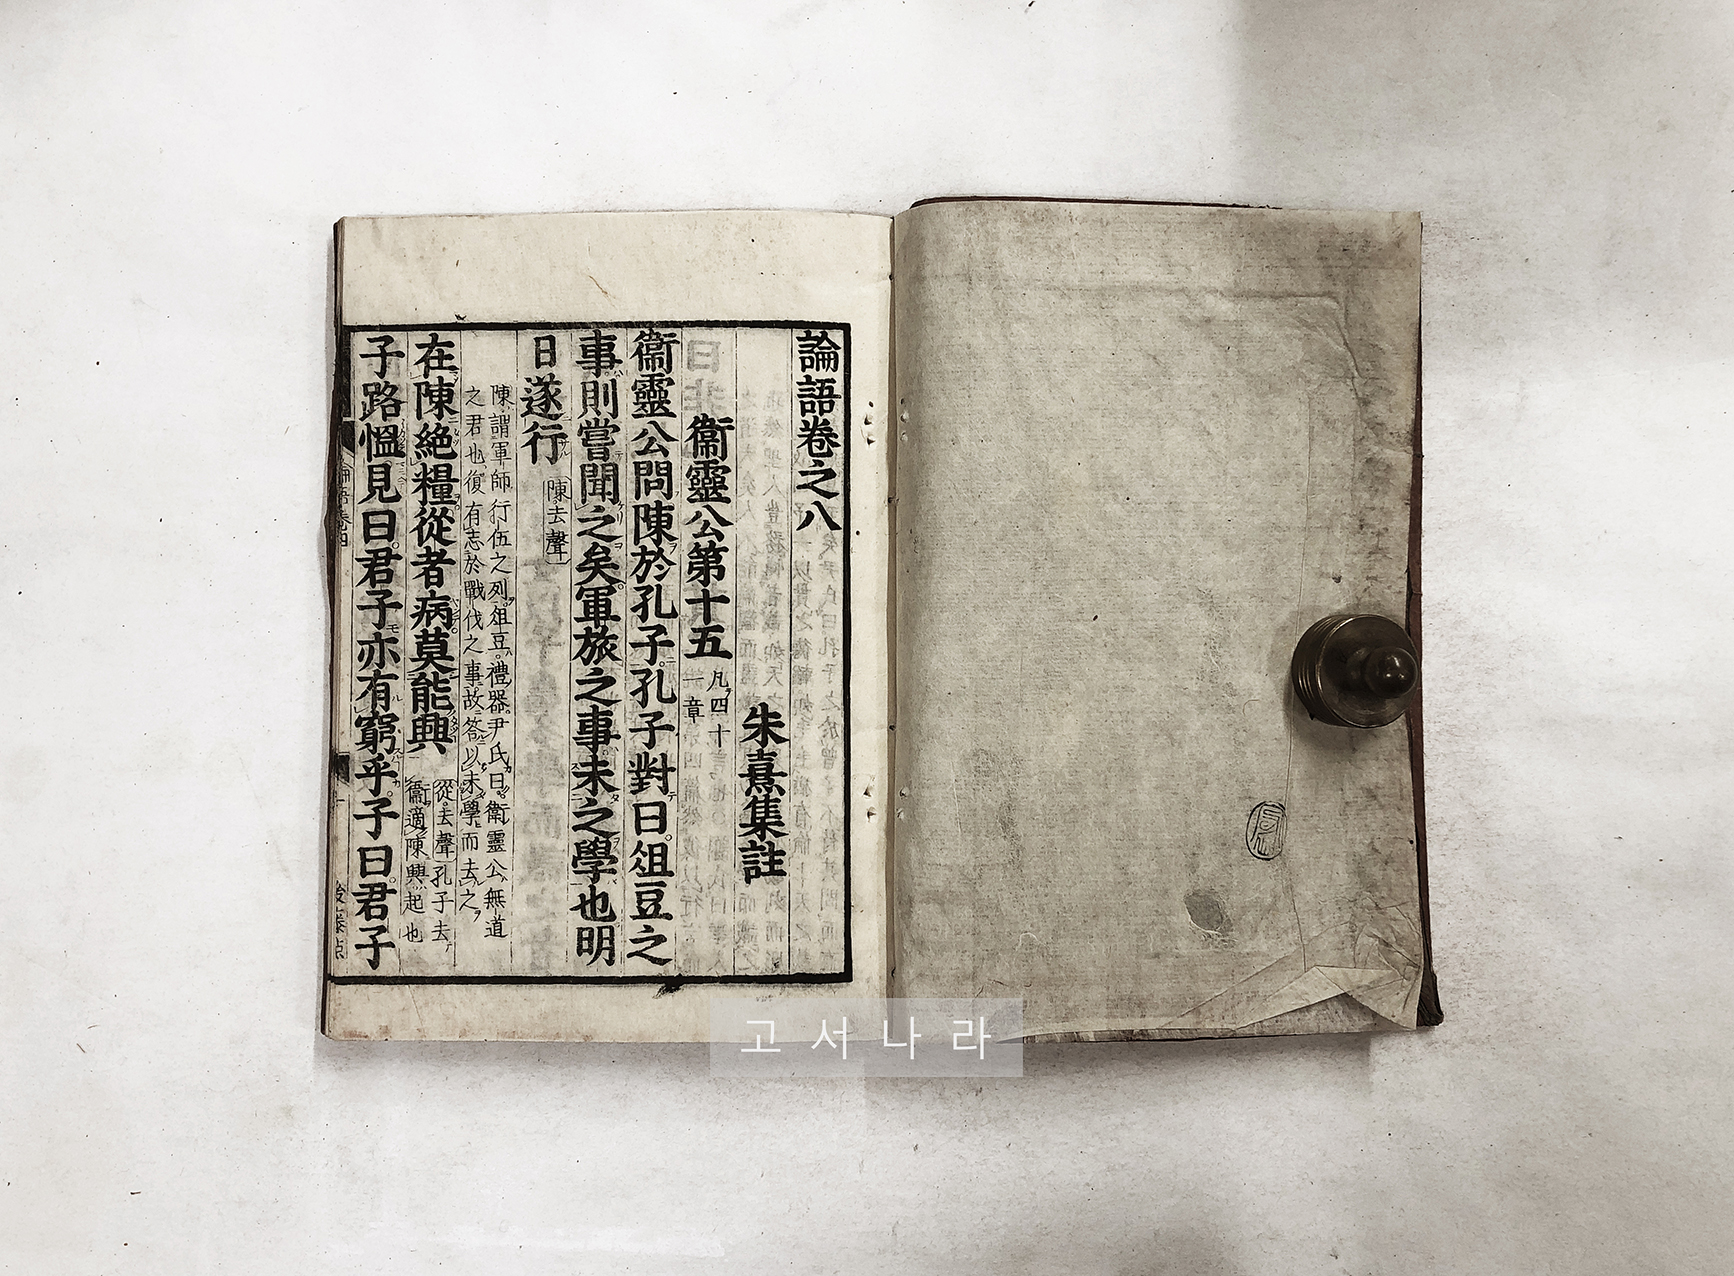 論語卷之八
朱熹集註
衞靈公第十五 凡四十一章
衞靈公問陳於孔子孔子對曰俎豆之
事則嘗聞之矣軍旅之事未之學也明
日遂行 陳去聲
陳謂軍師行伍之列俎豆禮器尹氏曰衛靈公無道
之君也復有志於戰伐之事故答以未學而去之
在陳絕糧從者病莫能興 從去聲孔子去衞適陳興起也
子路慍見曰君子亦有窮乎子曰君子
고서나라